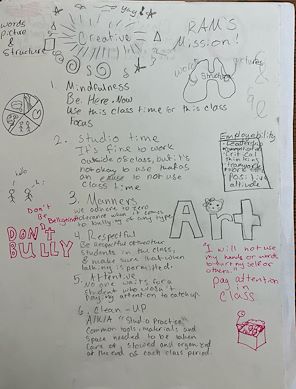 Yay!
words
picture
&
structure
Creative
RAM'S
Mission!
words
pictures
&
Structure
1. Mindfulness
Be. Here. Now
Use this class time for this class
focus
2. Studio time
It's fine to work
outside of class, but it's
not okay to use that as
an excuse to not use
class time
Employability
-Leadership
-communication
critical
thinking
teamwork
work ethic
positive
attitude
3. Manners
We adhere to zero
tolerance when it comes
to bullying of any type.
Don't
Be
DON'T
BULLY
Art
4. Respectful
Be Respectful of other
students in the class,
& make sure that when
talking is permitted.
"I will not use
my hands or words
to hurt myself or
others."
pay attention
in
class
5. Attentive
No one waits for a
student who wasn't
paying attention to catch up.
6. Clean-UP
A/K/A "Studio Practice"
Common tools, materials and
space needed to be taken
care of, stored and organized
at the end of each class period.